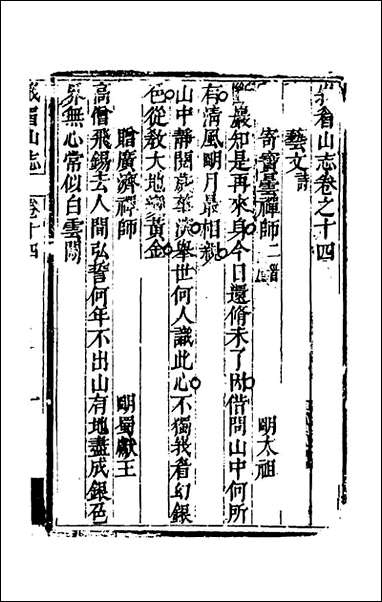 眉山志卷之十四
藝文詩
寄寶曇禪師二首　明太祖
最知是再來身今日還脩未了因借問山中何所
有清風明月最相親
山中靜閱歲華深舉世何人識此心不獨我看幻銀
色從教大地變黃金
贈廣濟禪師　明蜀獻王
高僧飛錫去人間弘誓何年不出山有地盡成銀色
界無心常似白雲閑
峩眉山志　卷十四